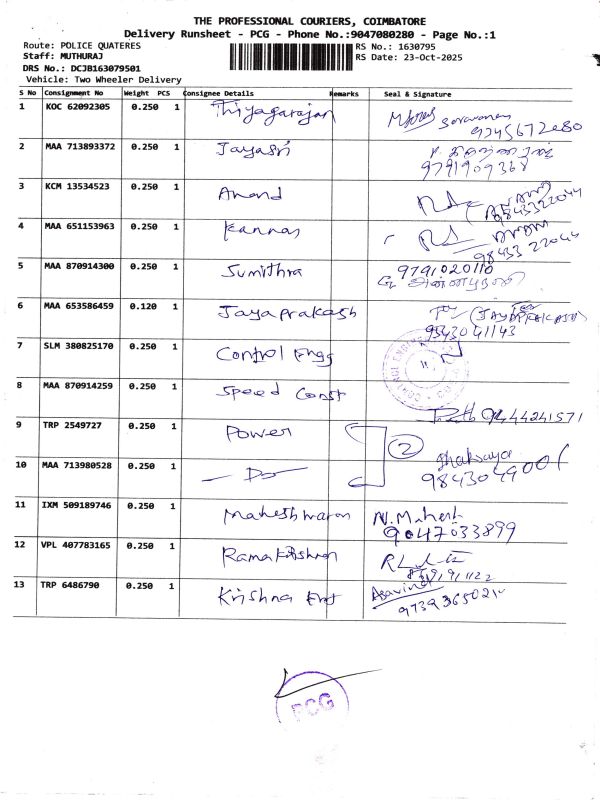 THE PROFESSIONAL COURIERS, COIMBATORE
Delivery Runsheet - PCG - Phone No.:9047080280 - Page No.:1
Route: POLICE QUATERES
RS No.: 1630795
Staff: MUTHURAJ
RS Date: 23-Oct-2025
DRS No.: DCJB163079501
Vehicle: Two Wheeler Delivery
S No Consignment No Weight PCS Consignee Details Remarks Seal & Signature
1 KOC 62092305 0.250 1 Thiyagarajan Saravanan
9245672680
2 MAA 713893372 0.250 1 Jayasri
9791909368
3 KCM 13534523 0.250 1 Anand
9843322044
4 MAA 651153963 0.250 1 Kannan
98433 22044
5 MAA 870914300 0.250 1 Sumithra 9791020110
6 MAA 653586459 0.120 1 Jayaprakash For (JAYAPRAKASH)
9543041143
7 SLM 380825170 0.250 1 Control Engg
8 MAA 870914259 0.250 1 Speed Const
9444241571
9 TRP 2549727 0.250 1 Power 2
10 MAA 713980528 0.250 1 — Do —
11 IXM 509189746 0.250 1 Maheshwaran N. Mahesh
9047033899
12 VPL 407783165 0.250 1 Ramakrishnan
13 TRP 6486790 0.250 1 Krishna Ent Aravind
PCG